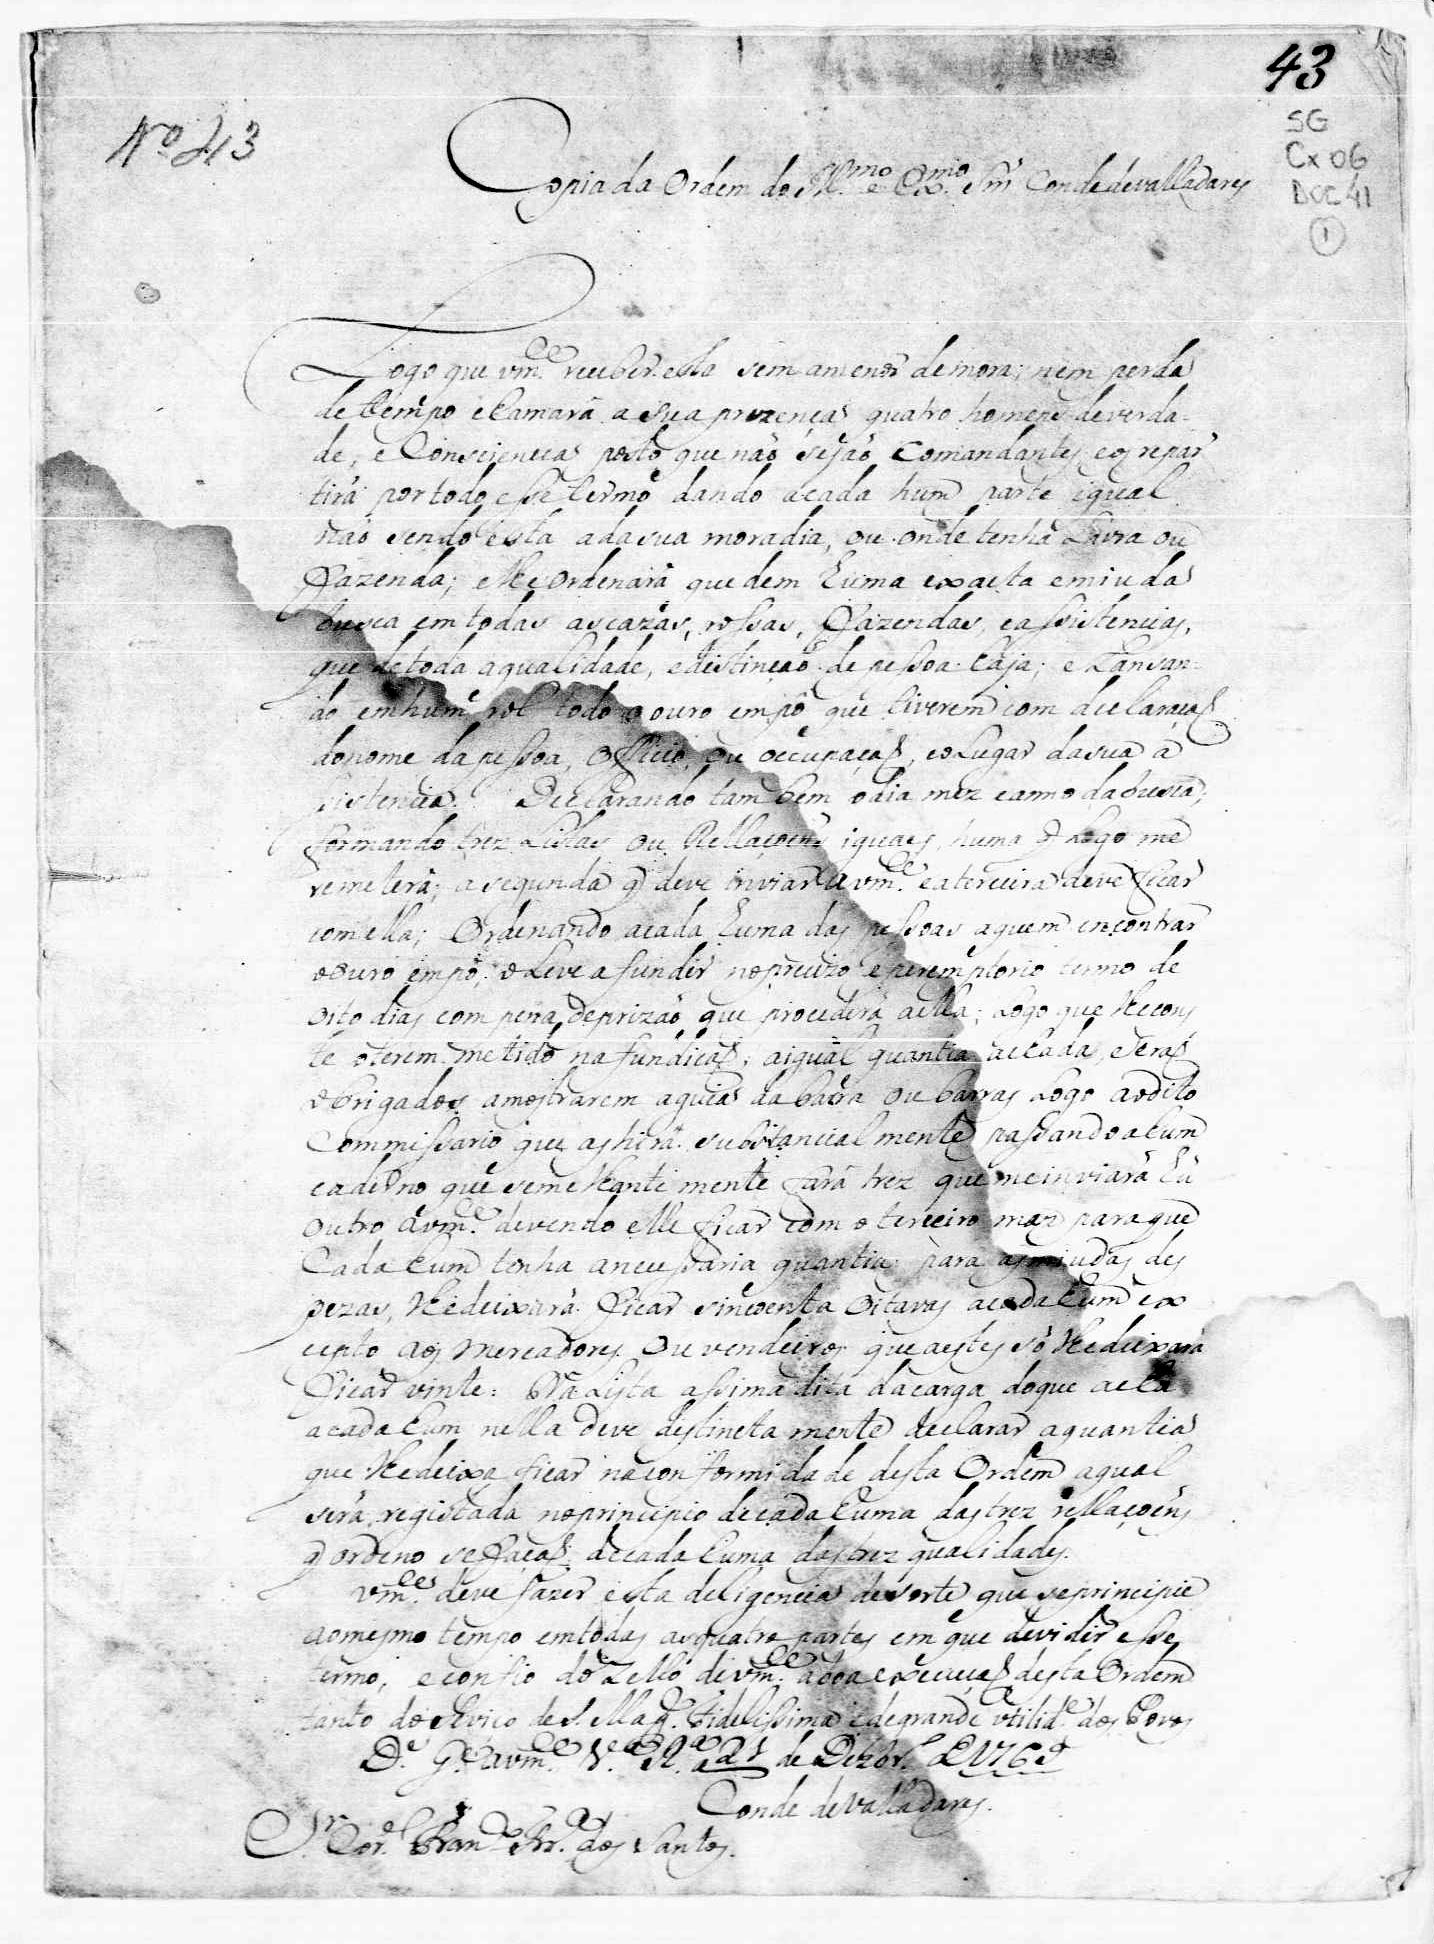 43
Nº 43
SG
Cx 06
Doc 41
1
Copia da Ordem do Ill.mo e Ex.mo Snr Conde de valladares
Logo que vm.ce receber esta sem amenor demora, nem perda
de tempo chamará a sua prezença quatro homens de verda-
de, e Consciencia posto que não sejão Comandantes, e os repar
tirá por todo esse termo dando acada hum parte igual
não sendo esta adasua moradia, ou onde tenha Lavra ou
Fazenda; e lhe Ordenará que dem huma exacta emiuda
busca em todas as cazas, rossas, Fazendas, e assistencias,
que de toda aqualidade, e distinção de pessoa haja; e Lansan-
do em hum rol todo o ouro em pó que tiverem com declaração
donome da pessoa, Officio, ou occupação, eo Lugar dasua a
sistencia. Declarando tambem odia mez eanno dabusca,
formando trez Listas ou Rellaçoens iguaes, huma q̃ Logo me
remeterá; a segunda q̃ deve inviar a vm.ce eaterceira deve ficar
com ella; Ordenando acada huma das pessoas aquem encontrar
oouro em pó, o Leve afundir nopreciso e peremptorio termo de
oito dias com pena deprizão que procederá a ella; Logo que lhe cons
te oterem metido nafundição, aigual quantia achada, e serão
obrigados amostrarem aguia da barra ou barras Logo aodito
Commissario que as hirá substancialmente passando a hum
caderno que semelhantemente fará trez que meinviará hũ
outro á vm.ce devendo elle ficar com oterceiro mas paraque
Cada hum tenha anecessaria quantia para as miudas des
pezas, lhe deixará ficar sincoenta oitavas acada hum ex
cepto aos mercadores ou vendeiros que aestes só lhe deixará
ficar vinte: Na Lista assima dita dacarga doque acha
acada hum nella deve distinctamente declarar aquantia
que lhe deixa ficar naconformidade desta Ordem aqual
será registada noprincipio decada huma das trez rellaçoens
q̃ ordeno se fação decada huma das trez qualidades.
vm.ce deve fazer esta deligencia desorte que seprincipie
aomesmo tempo emtodas as quatro partes em que devidir esse
termo, e confio do Zello de vm.ce aboa execução desta Ordem
tanto do Serviço de S. Mag.e Fidelissima e degrande utilid.e dos Povos
D.s G.e a vm.ce V.a R.a a 21 de Dezbr.o de 1769
Conde de valladares.
Sr. Cor.el Fran.co Frr.a dos Santos.